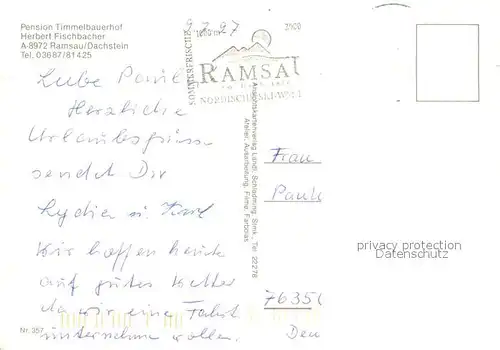 Pension Timmelbauerhof
Herbert Fischbacher
A-8972 Ramsau/Dachstein
Tel. 03687/81425
9.7.97
SOMMERFRISCHE
RAMSAU
NORDISCHE SKI-W
Liebe Paul
Herzliche
Urlaubsgrüsse
sendet Dir
Lydia u. Karl
Wir hoffen heute
auf gutes Wetter
da wir eine Fahrt
unternehmen wollen.
Nr. 957
Ansichtskartenverlag Lendl, Schladming, Stmk., Tel. 22278
Atelier, Ausarbeitung, Filme, Farbdias
Frau
Paul
7635
Deu
privacy protection
Datenschutz